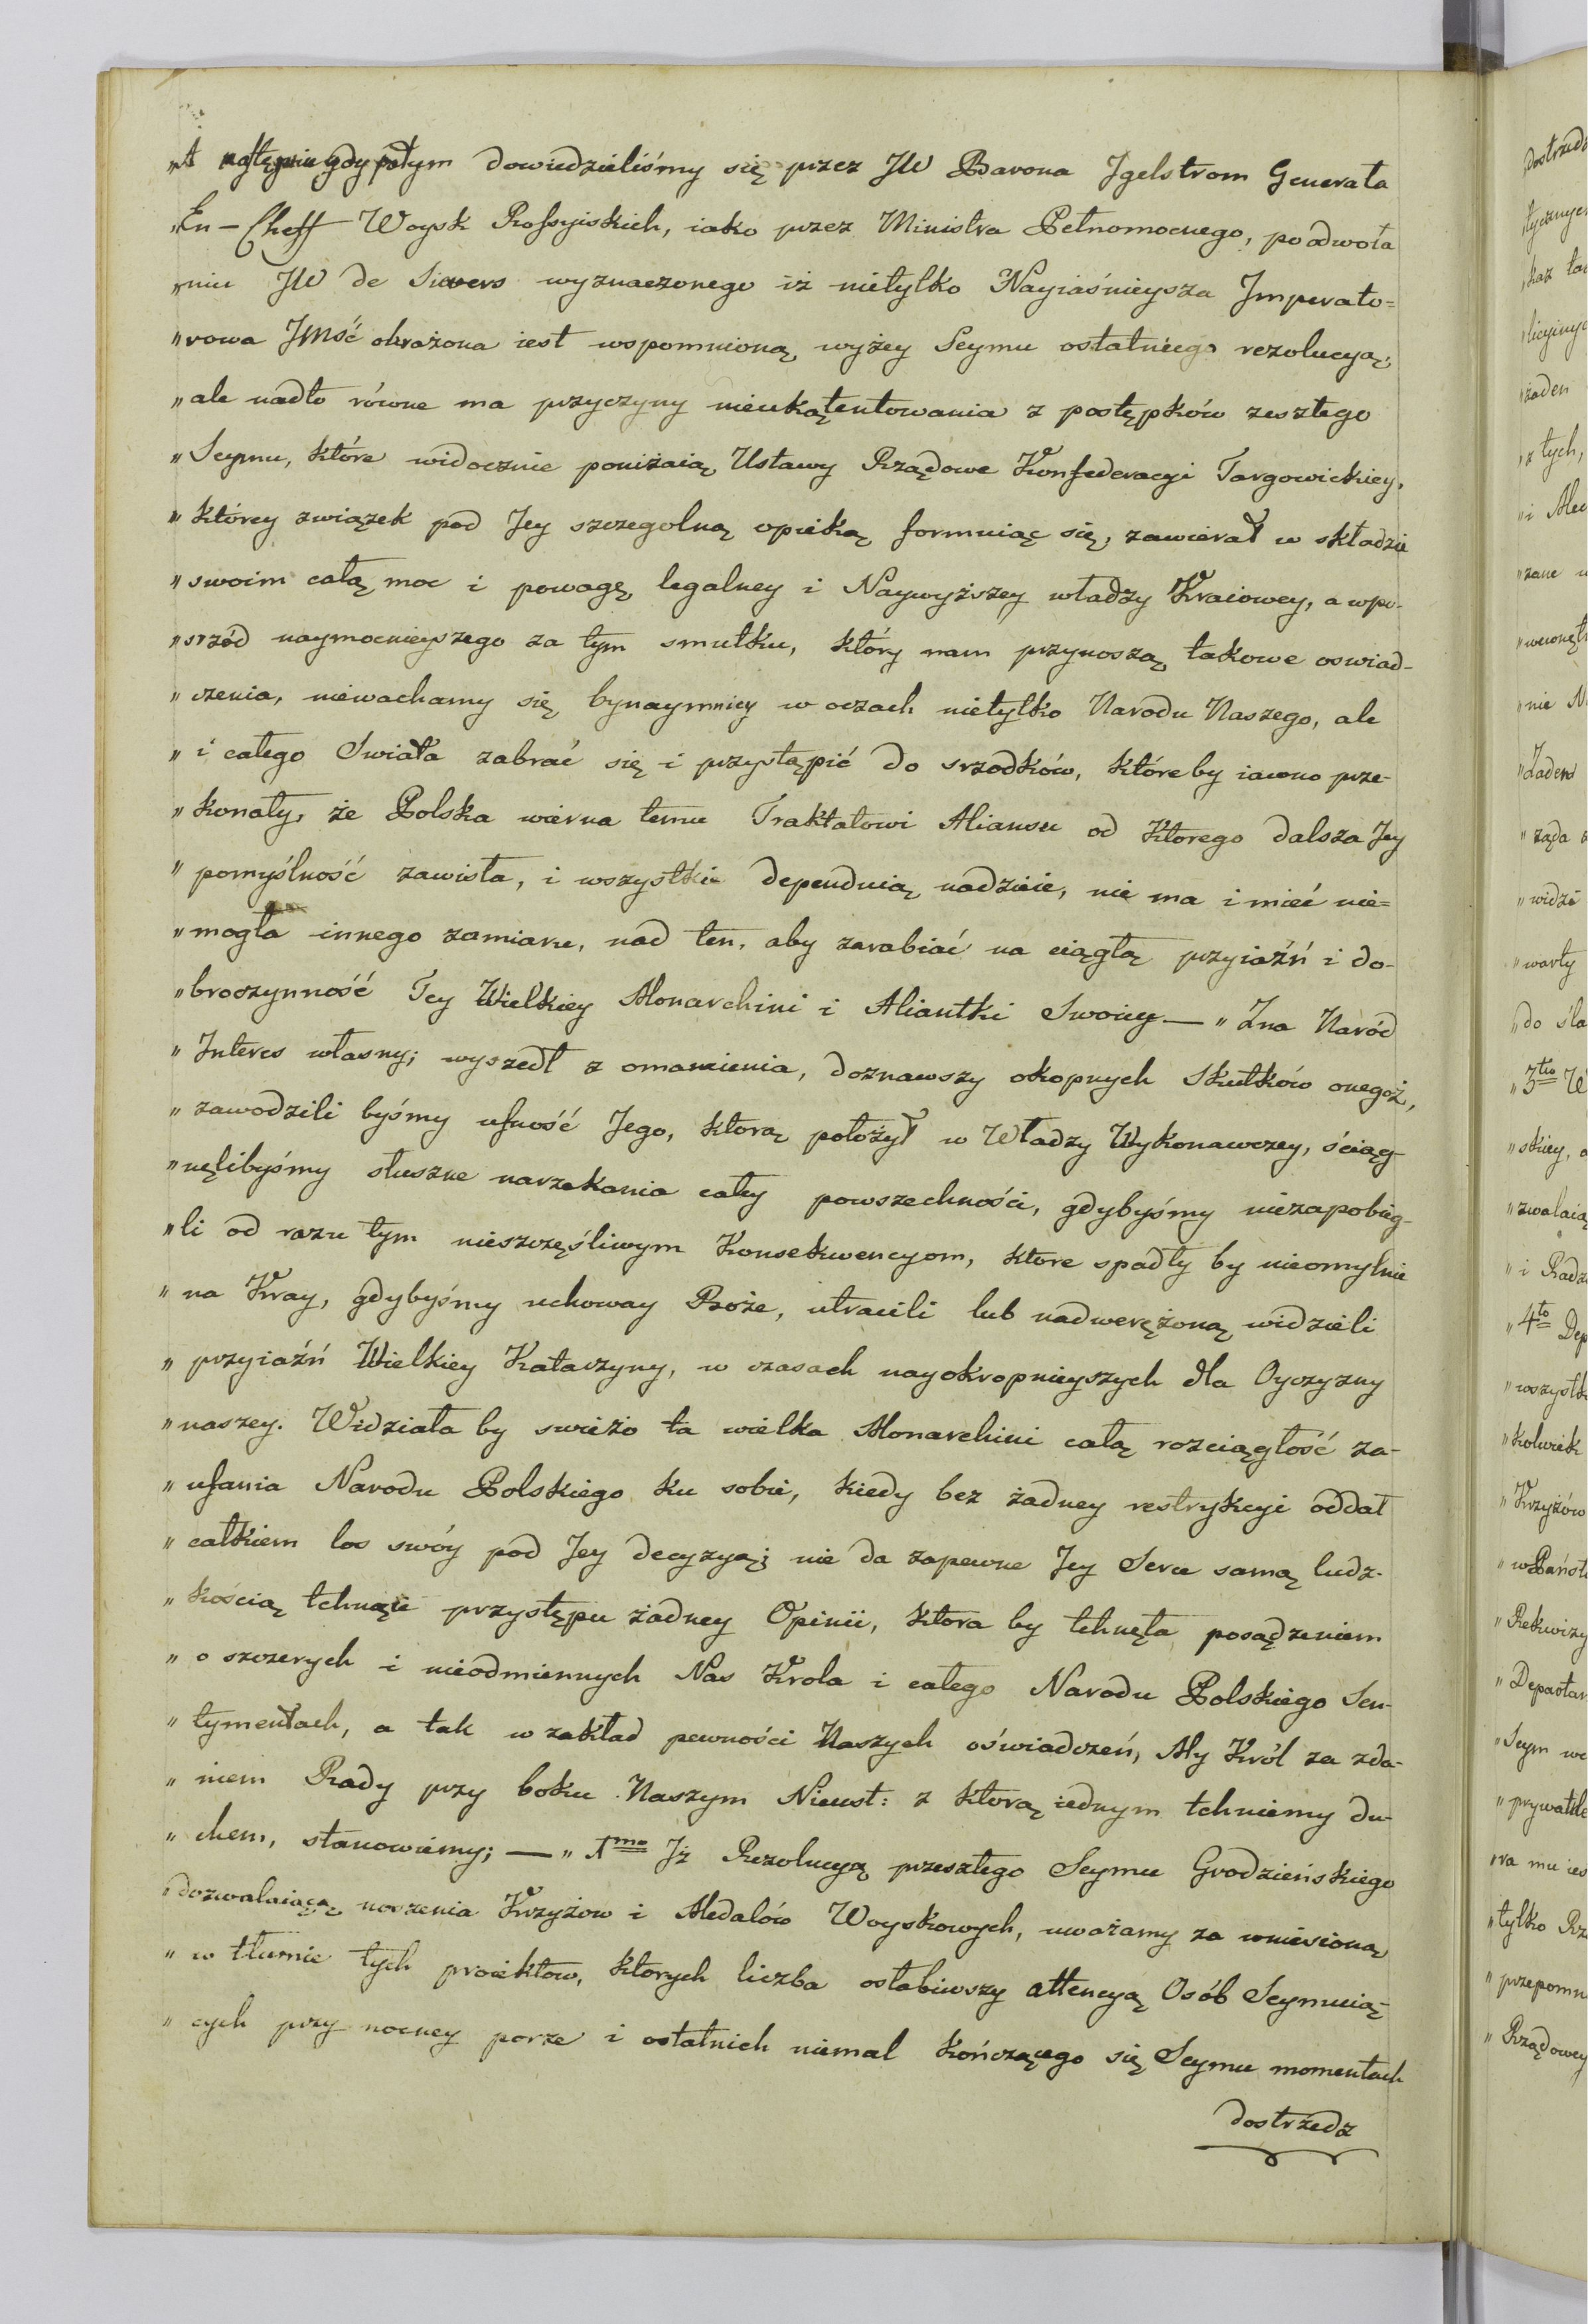 „A następnie gdy potym dowiedzieliśmy się przez JW Barona Jgelstrom Generała
„En-Cheff Woysk Rossyiskich, iako przez Ministra Pełnomocnego, po odwoła
„niu JW de Sievers wyznaczonego iż nietylko Nayiaśnieysza Jmperato=
„rowa JMść obrażona iest wspomnioną wyżey Seymu ostatniego rezolucyą,
„ale nadto równe ma przyczyny nieukątentowania z postępków zeszłego
„Seymu, które widocznie poniżaią Ustawy Rządowe Konfederacyi Targowickiey,
„którey związek pod Jey szczegolną opieką formuiąc się, zawierał w składzie
„swoim całą moc i powagę legalney i Naywyższey władzy Kraiowey, a wpo-
„srzód naymocnieyszego za tym smutku, który nam przynoszą takowe oswiad-
„czenia, niewachamy się bynaymniey w oczach nietylko Narodu Naszego, ale
„i całego Swiata zabrać się i przystąpić do srzodków, któreby iawno prze-
„konały, że Polska wierna temu Traktatowi Aliansu od Ktorego dalsza Jey
„pomyślność zawisła, i wszystkie dependuią nadzieie, nie ma i mieć nie=
„mogła innego zamiaru, nad ten, aby zarabiać na ciągłą przyiaźń i do-
„broczynność Tey Wielkiey Monarchini i Aliantki Swoiey — „Zna Naród
„Jnteres własny; wyszedł z omamienia, doznawszy okopnych Skutków onegoż,
„zawodzili byśmy ufność Jego, ktorą położył w Władzy Wykonawczey, ściąg-
„nęlibyśmy słuszne narzekania całey powszechności, gdybyśmy niezapobieg-
„li od razu tym nieszczęśliwym Konsekwencyom, ktore spadły by nieomylnie
„na Kray, gdybyśmy uchoway Boże, utracili lub nadwerężoną widzieli
„przyiaźń Wielkiey Katarzyny, w czasach nayokropnieyszych dla Oyczyzny
„naszey. Widziała by swieżo ta wielka Monarchini całą rozciągłość za-
„ufania Narodu Polskiego ku sobie, kiedy bez żadney restrykcyi oddał
„całkiem los swóy pod Jey decyzyą; nie da zapewne Jey Serce samą ludz-
„kością tchnące przystępu żadney Opinii, ktora by tchnęła posądzeniem
„o szczerych i nieodmiennych Nas Krola i całego Narodu Polskiego Sen-
„tymentach, a tak w zakład pewności Naszych oświadczeń, My Król za zda-
„niem Rady przy boku Naszym Nieust: z ktorą iednym tchniemy du-
„chem, stanowiemy; — „1mo Jż Rezolucyą przeszłego Seymu Grodzieńskiego
„dozwalaiącą noszenia Krzyżow i Medalów Woyskowych, uważamy za wniesioną
„w tłumie tych proiektow, ktorych liczba osłabiwszy attencyą Osób Seymuią-
„cych przy nocney porze i ostatnich niemal kończącego się Seymu momentach
dostrzedz